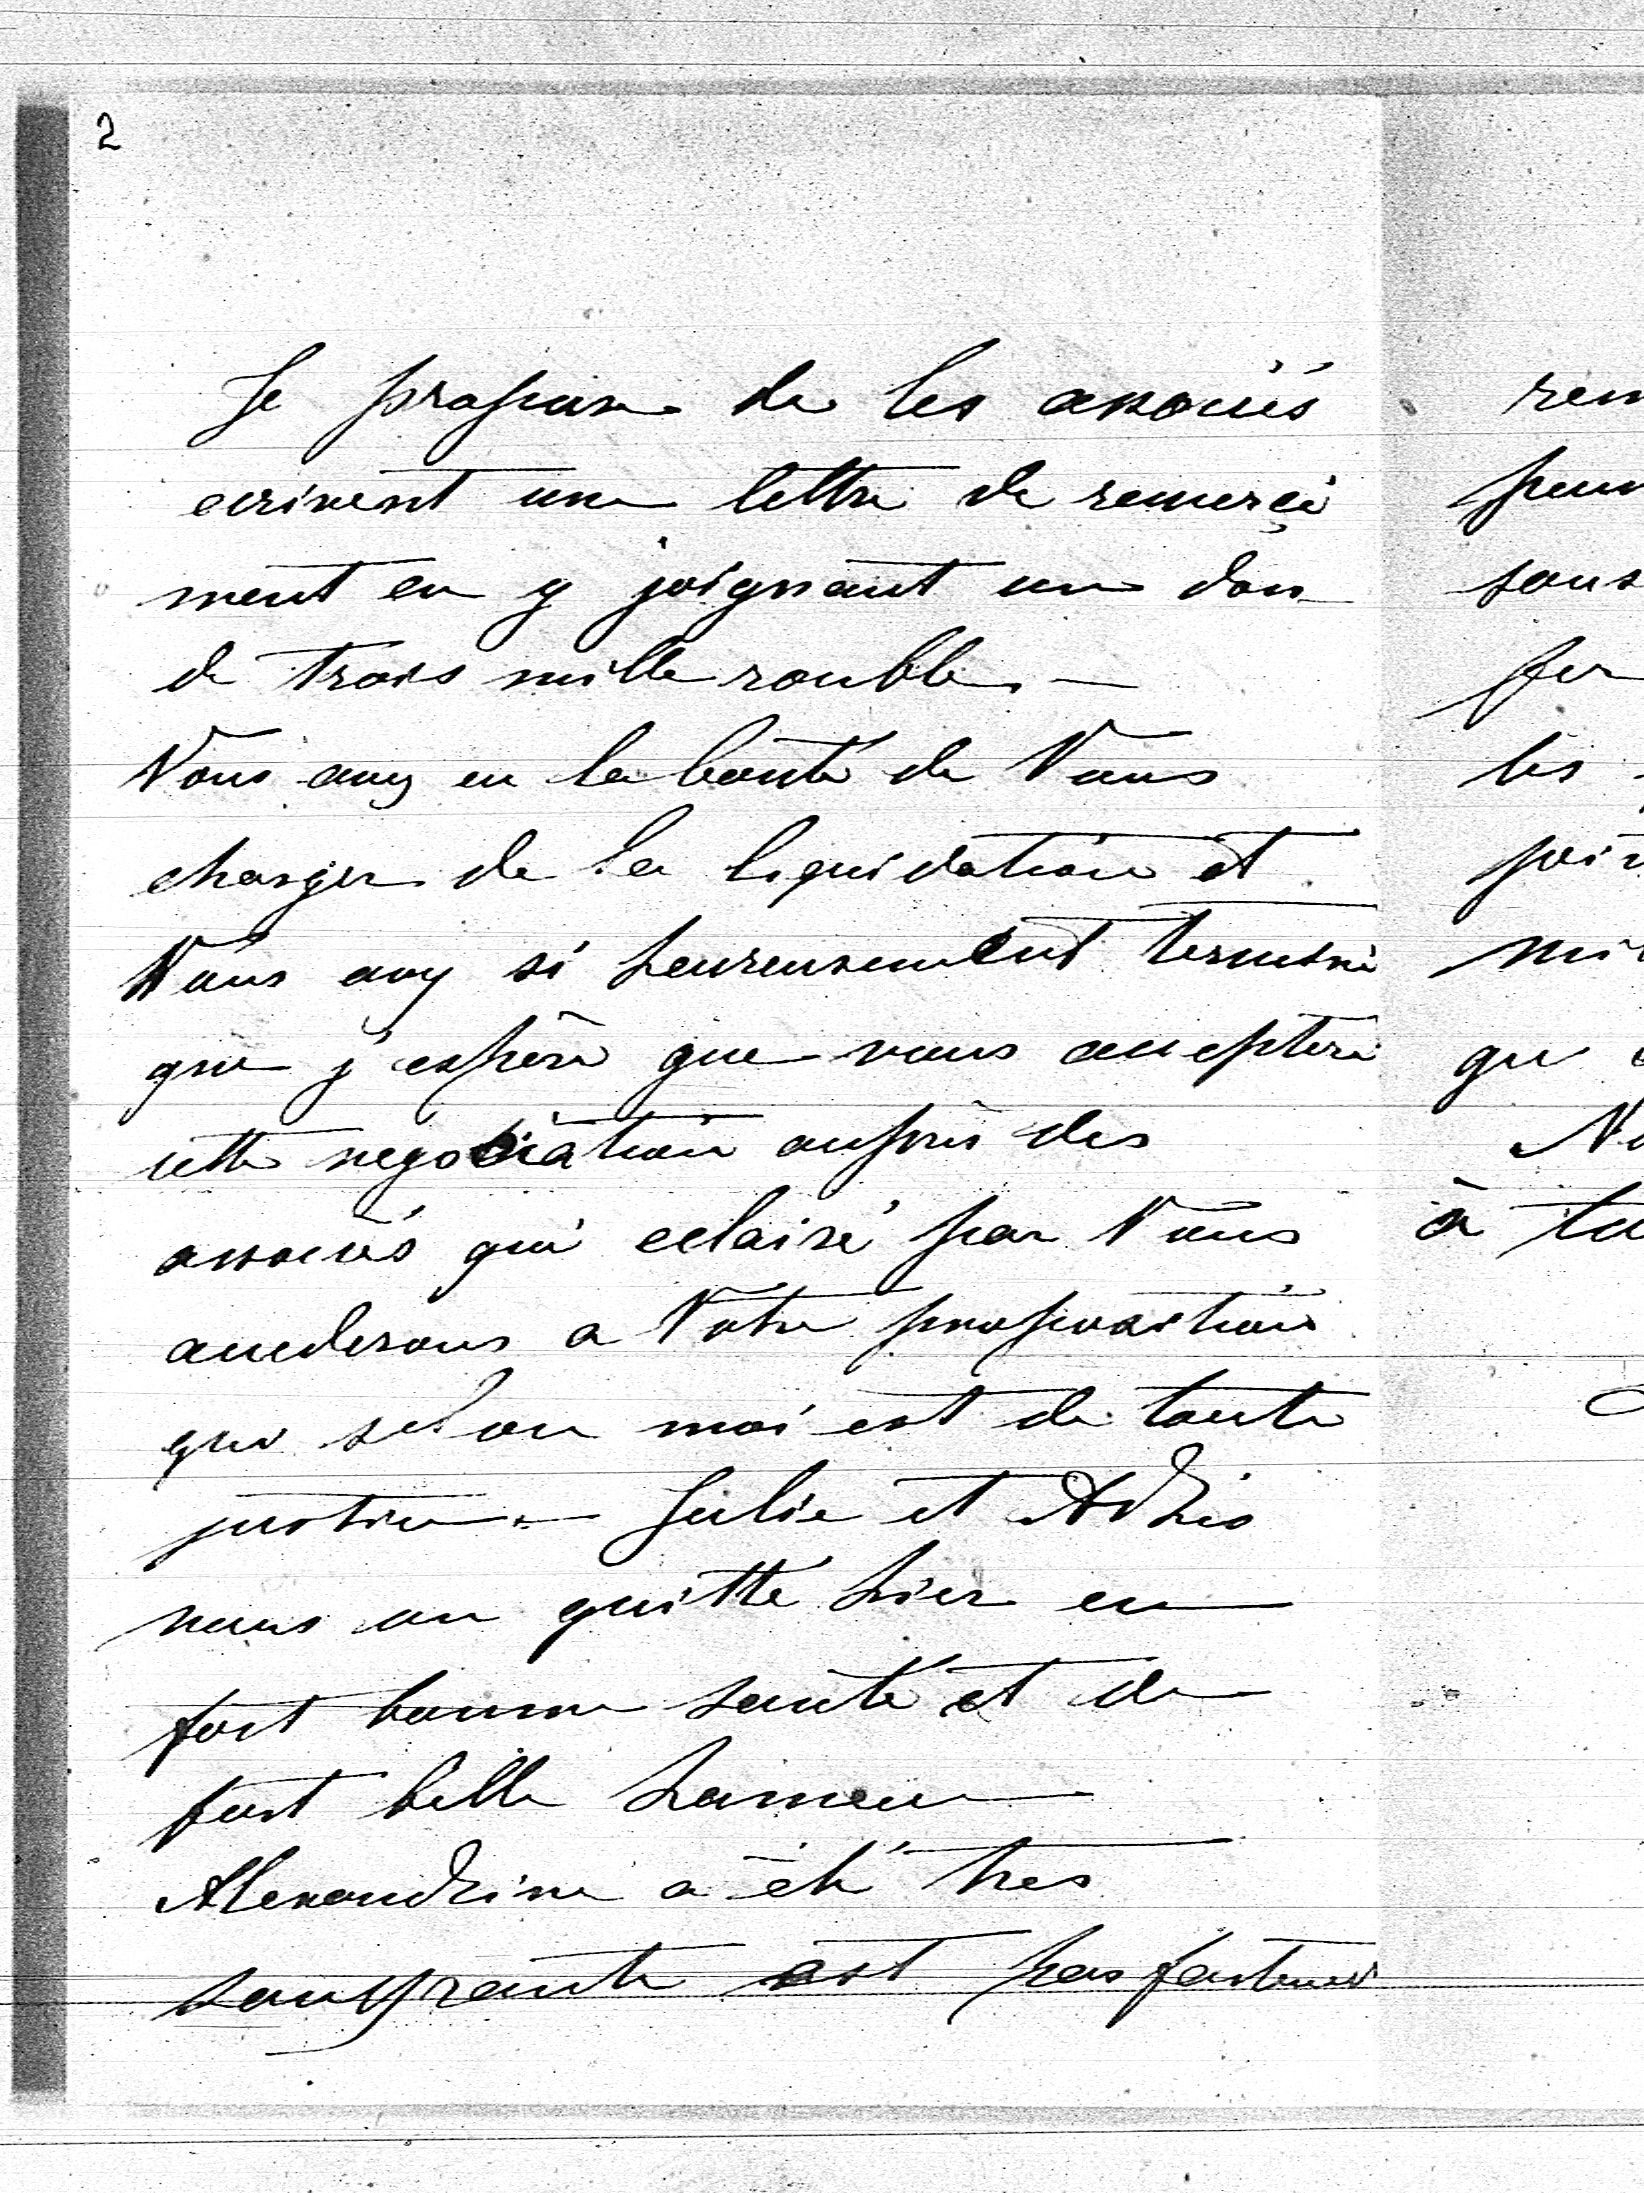 2
Je propose de les associés
ecrivent une lettre de remerçi
ment en y joignant un don
de trois mille roubles.—
Vous avez eu la bonté de Vous
charger de la liquidation et
Vous avez si heureusement terminé
que j'espère que vous accepteré
cette negociation auprès des
associés qui eclairé par Vous
accederons a Votre proposition
que selon moi est de toute
justice.— Julie et
nous on quitté hier en
fort bonne santé et de
fort belle humeur
Alexandrine a été tres
souffrante est